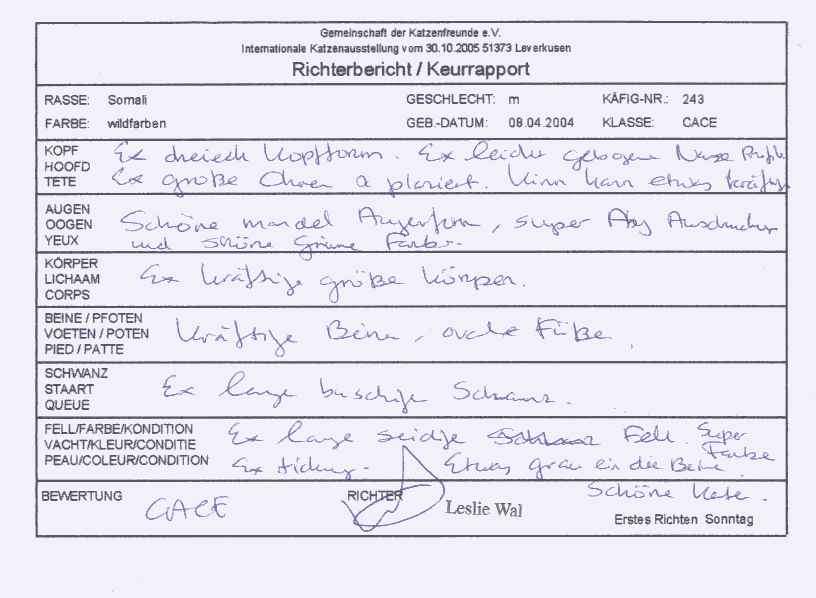 Gemeinschaft der Katzenfreunde e.V.
Internationale Katzenausstellung vom 30.10.2005 51373 Leverkusen
Richterbericht / Keurrapport
RASSE: Somali GESCHLECHT: m KÄFIG-NR.: 243
FARBE: wildfarben GEB.-DATUM: 08.04.2004 KLASSE: CACE
KOPF
HOOFD
TETE
Ex dreieck Kopfform. Ex leicht gebogene Nase Profil
Ex große Ohren plaziert. Kinn kann etwas kräftig
AUGEN
OOGEN
YEUX
Schöne mandel Augenform, super Aby Ausdruck
und shöne Grüne Farbe.
KÖRPER
LICHAAM
CORPS
Ex kräftige größe Körper.
BEINE / PFOTEN
VOETEN / POTEN
PIED / PATTE
Kräftige Beine, ovale Füße.
SCHWANZ
STAART
QUEUE
Ex lange buschige Schwanz.
FELL/FARBE/KONDITION
VACHT/KLEUR/CONDITIE
PEAU/COULEUR/CONDITION
Ex lange seidige Fell. Super Farbe
Ex ticking. Etwas grau in die Beine.
BEWERTUNG CACE RICHTER Leslie Wal Schöne Katze.
Erstes Richten Sonntag